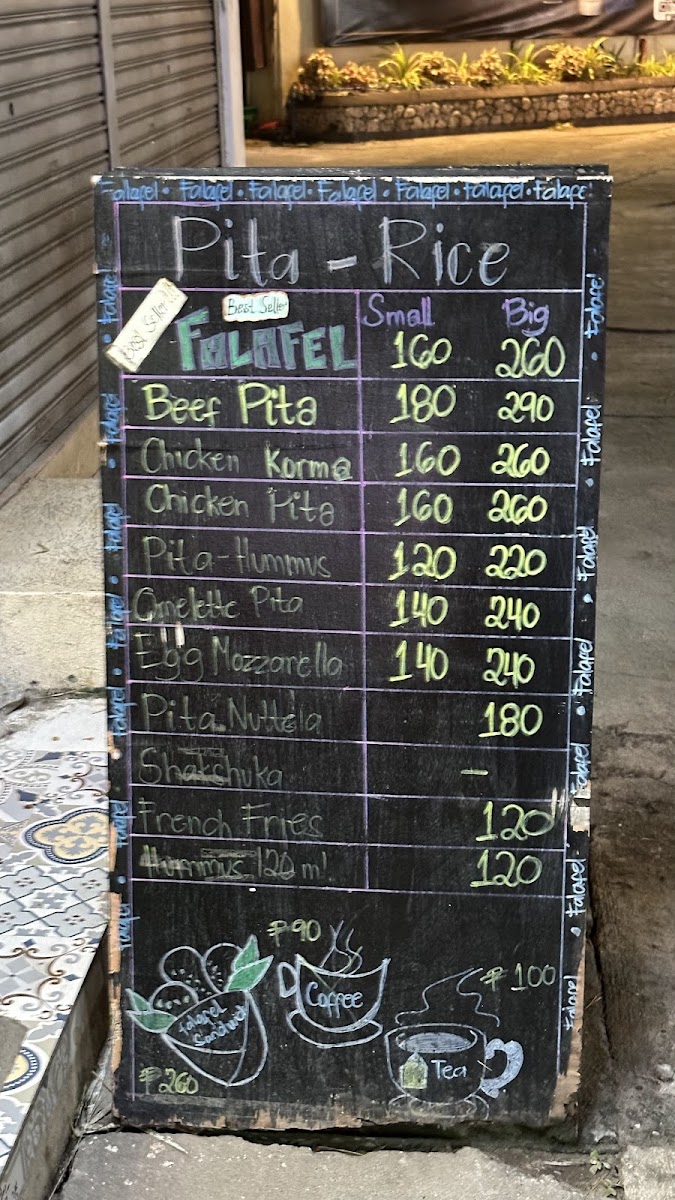 Falafel • Falafel • Falafel • Falafel • Falafel • Falafel • Falafel
Pita - Rice
Best Seller Best Seller Small Big
FALAFEL 160 260
Beef Pita 180 290
Chicken Korma 160 260
Chicken Pita 160 260
Pita-Hummus 120 220
Omelette Pita 140 240
Egg Mozzarella 140 240
Pita Nuttela 180
Shakchuka -
French Fries 120
Hummus 120 ml 120
₱90
Coffee
₱100
Falafel Sandwich
Tea
₱260
Falafel • Falafel • Falafel • Falafel • Falafel • Falafel
Falafel • Falafel • Falafel • Falafel • Falafel • Falafel • Falafel